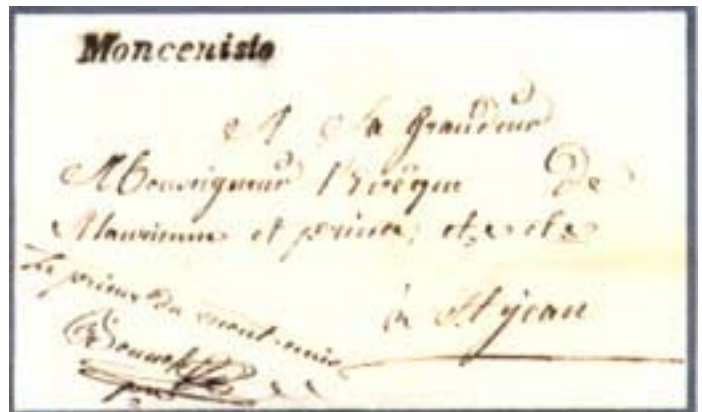 Moncenisio
A Sa Grandeur
Monseigneur l'Evêque De
Maurienne et prince, etc etc
à St jean
Le prieur du mont-cenis